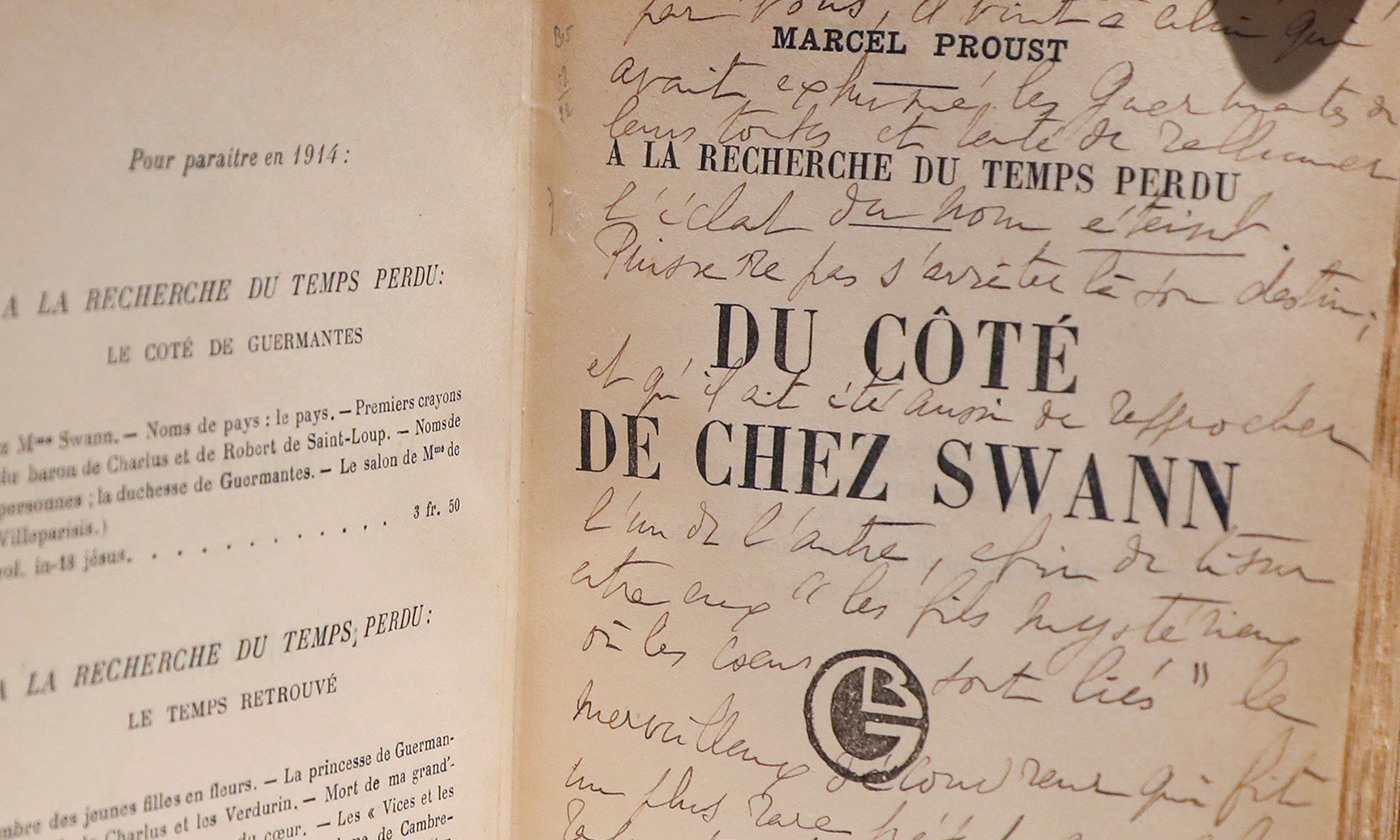 Pour paraitre en 1914 :
A LA RECHERCHE DU TEMPS PERDU:
LE COTÉ DE GUERMANTES
Mme Swann. — Noms de pays : le pays. — Premiers crayons
du baron de Charlus et de Robert de Saint-Loup. — Noms de
personnes ; la duchesse de Guermantes. — Le salon de Mme de
Villeparisis.)
vol. in-18 jésus. . . . . . . . . . . 3 fr. 50
A LA RECHERCHE DU TEMPS PERDU:
LE TEMPS RETROUVÉ
des jeunes filles en fleurs. — La princesse de Guerman-
Charlus et los Verdurin. — Mort de ma grand'-
du cœur. — Les « Vices et les
de Cambre-
par vous, il vint à celui qui
MARCEL PROUST
avait exhumé les Guermantes de
leurs tombes et tenté de rallumer
A LA RECHERCHE DU TEMPS PERDU
l'éclat du nom éteint.
Puisse ne pas s'arrêter là son destin,
DU CÔTÉ
et qu'il ait été aussi de rapprocher
DE CHEZ SWANN
l'un de l'autre, afin de tisser
entre eux "les fils mystérieux
où les cœurs sont liés" le
BG
merveilleux qui fit
un plus rare